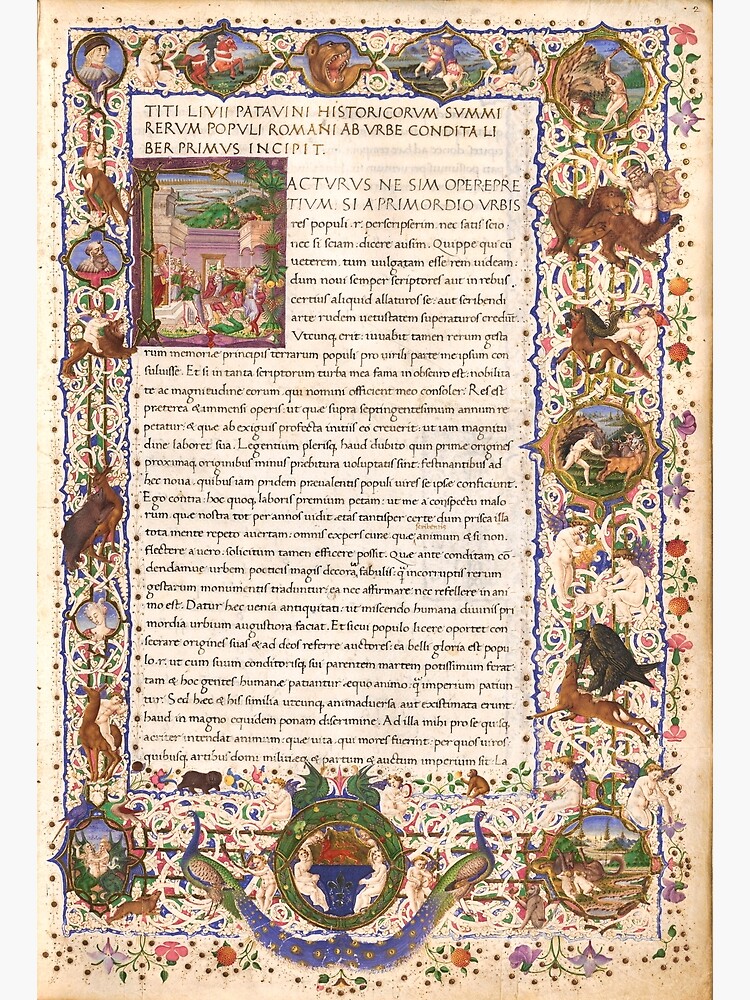 2
TITI LIVII PATAVINI HISTORICORVM SVMMI
RERVM POPVLI ROMANI AB VRBE CONDITA LI
BER PRIMVS INCIPIT.
FACTVRVS NE SIM OPEREPRE
TIVM: SI A PRIMORDIO VRBIS
res populi .r. perscripserim: nec satis scio:
nec si sciam: dicere ausim. Quippe qui cū
veterem, tum vulgatam esse rem videam:
dum novi semper scriptores aut in rebus
certius aliquid allaturos se: aut scribendi
arte rudem vetustatem superaturos credūt.
Utcunq, erit: iuvabit tamen rerum gesta
rum memoriæ principis terrarum populi pro virili parte me ipsum con
suluisse. Et si in tanta scriptorum turba mea fama in obscuro est: nobilita
te ac magnitudine eorum, qui nomini officient meo consoler. Res est
preterea & immensi operis: ut quæ supra septingentesimum annum re
petatur: & quæ ab exiguis profecta initiis eo creverit: ut iam magnitu
dine laboret sua. Legentium plerisq, haud dubito quin primæ origines
proximaq, originibus minus præbitura voluptatis sint: festinantibus ad
hæc nova, quibus iam pridem prævalentis populi vires se ipse conficiunt.
Ego contra: hoc quoq, laboris premium petam: ut me a conspectu malo
rum, quæ nostra tot per annos vidit, etas tantisper certe dum prisca illa
scribentis
tota mente repeto avertam: omnis expers curæ quæ animum & si non
flectere a vero: sollicitum tamen efficere possit. Quæ ante conditam cō
dendamve urbem poeticis magis decora fabulis: q̃ incorruptis rerum
gestarum monumentis traduntur: ea nec affirmare nec refellere in ani
mo est. Datur hæc venia antiquitati: ut miscendo humana divinis pri
mordia urbium augustiora faciat. Et sicui populo licere oportet con
secrare origines suas & ad deos referre auctores: ea belli gloria est popu
lo .r. ut cum suum conditorisq, sui parentem martem potissimum ferat:
tam & hoc gentes humanæ patiantur æquo animo: q̃ imperium patiun
tur. Sed hæc & his similia utcunq, animadversa aut existimata erunt:
haud in magno equidem ponam discrimine. Ad illa mihi pro se quisq,
acriter intendat animum: quæ vita, qui mores fuerint: per quos viros:
quibusq, artibus domi militiæq, & partum & auctum imperium sit: La